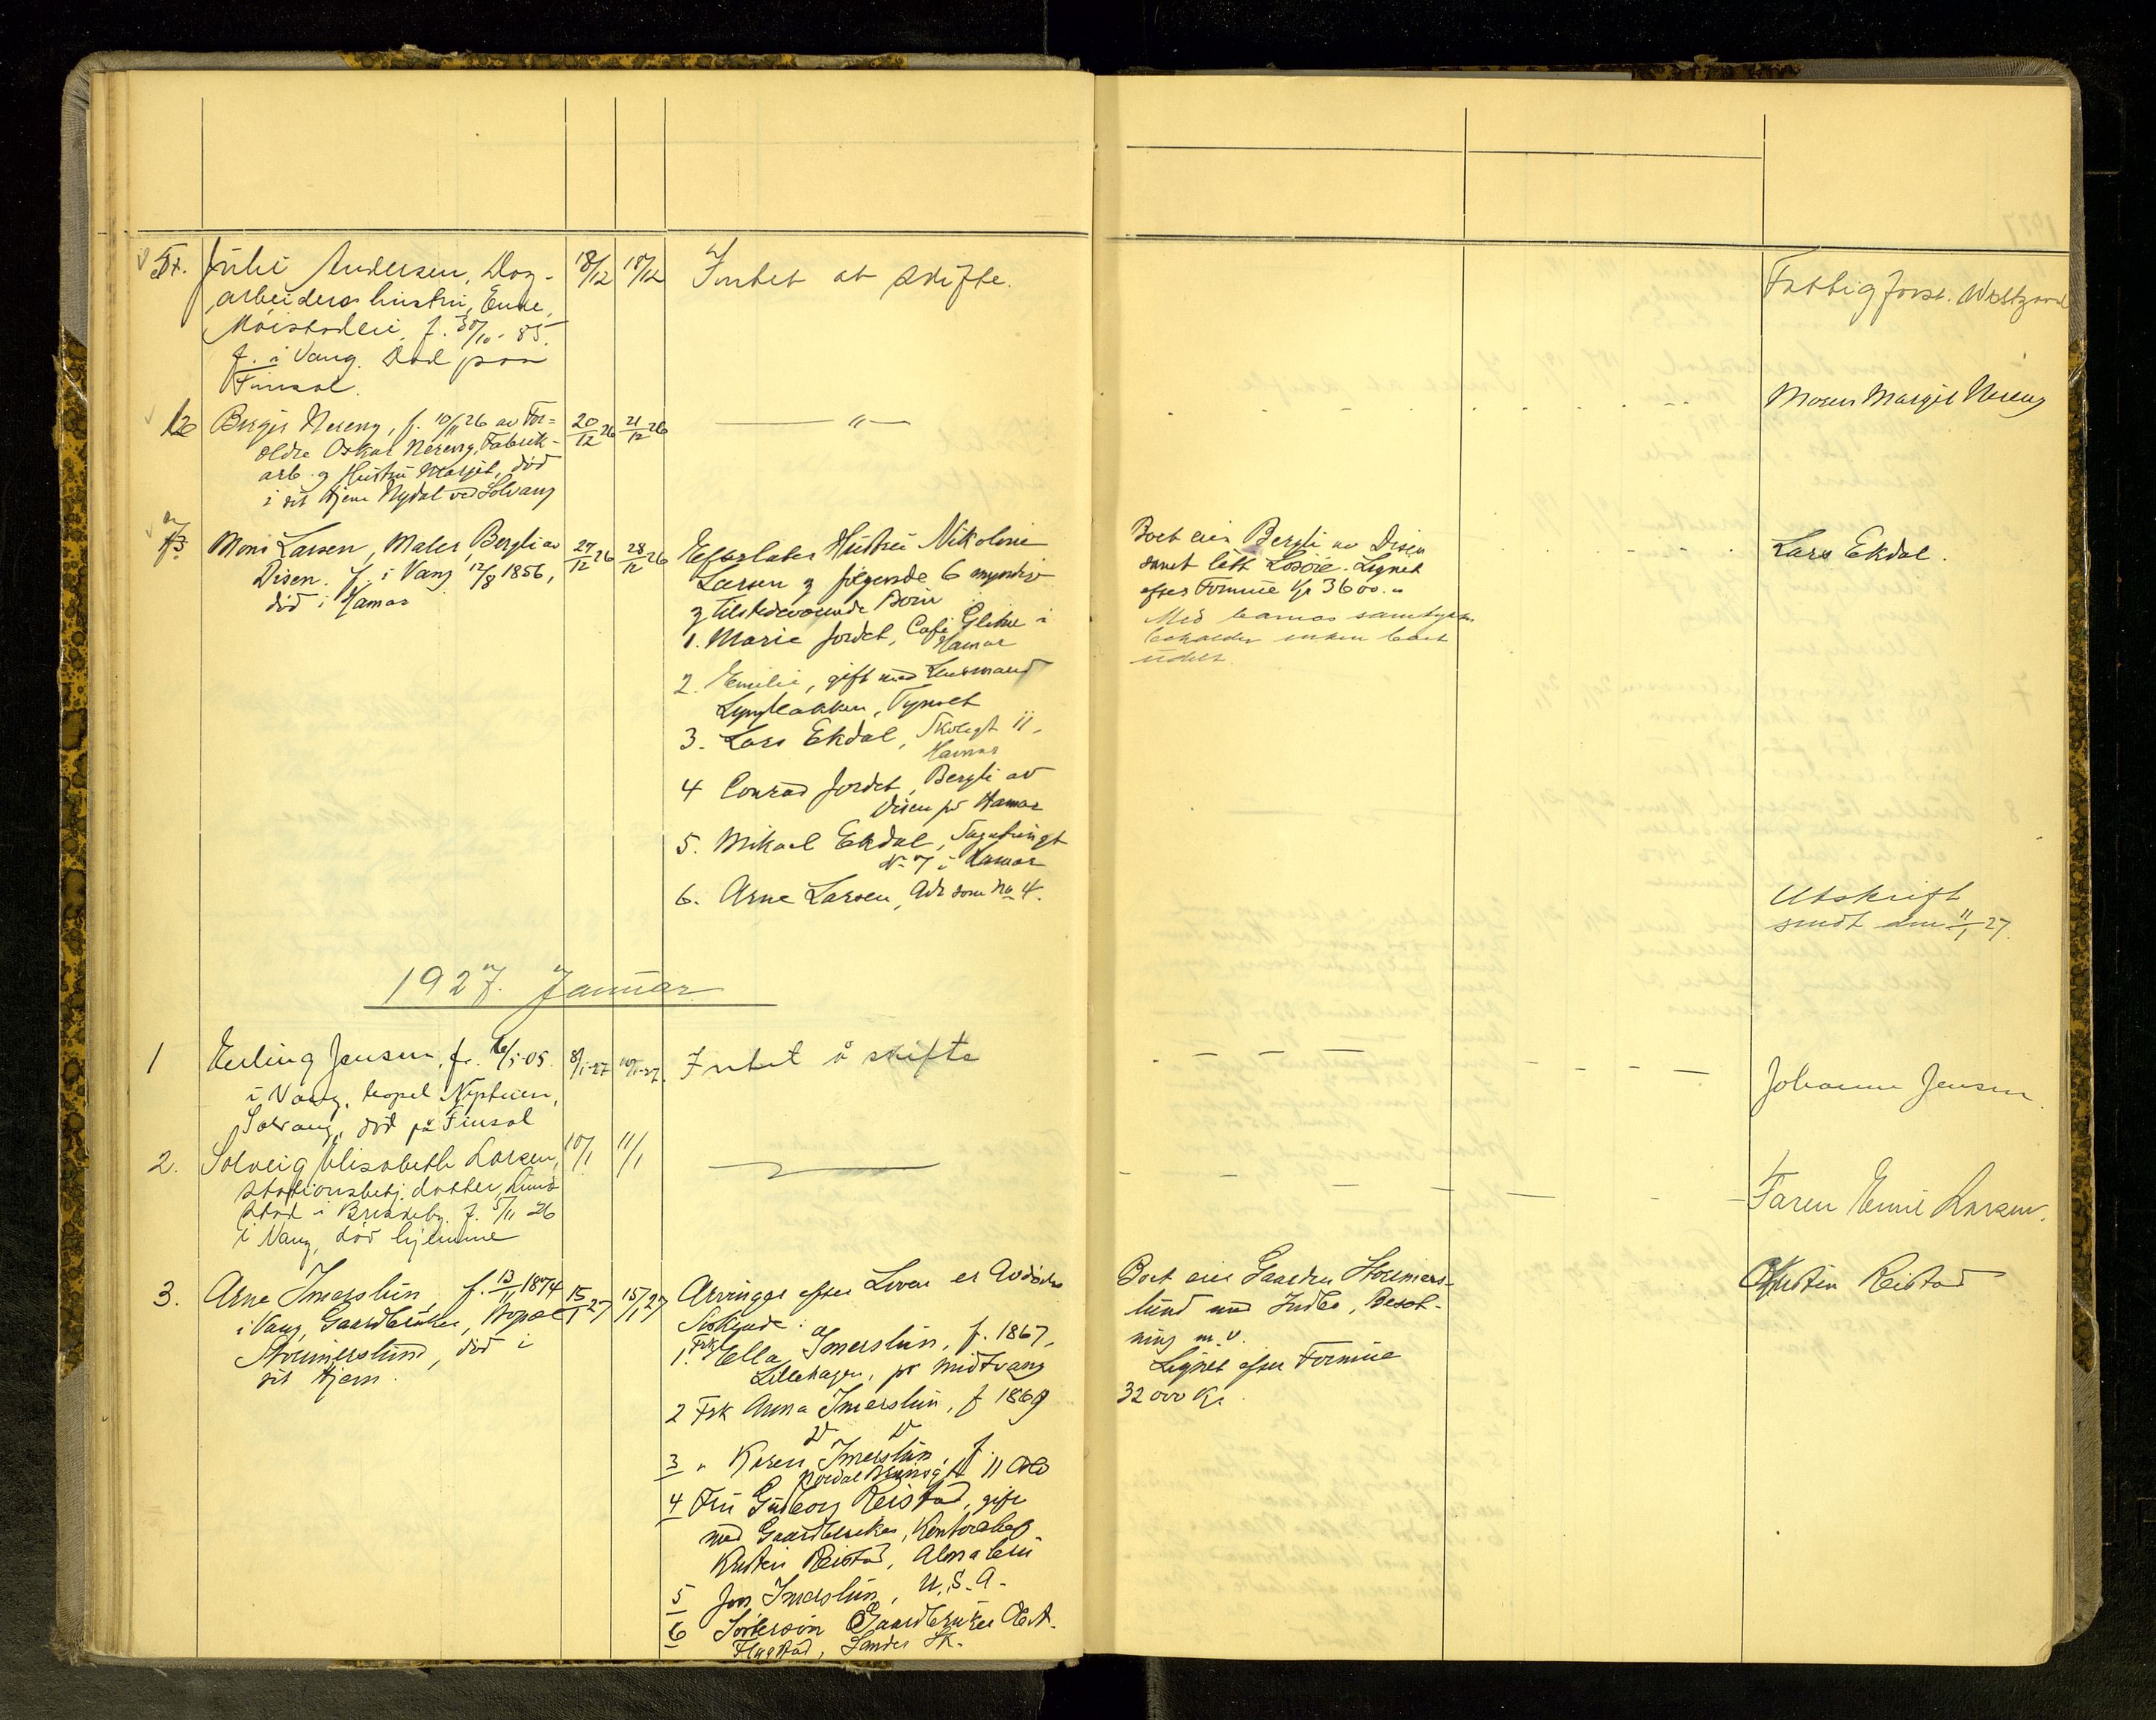 71. Julie Andersen, Dag-
arbeiders hustru, Enke,
Moistadeie, f. 30/10-85.
f. i Vang. Død paa
Finsal.
18/12 18/12
Intet at skifte.
Fattigforst. Westgaard
72 Birgit Nereng, f. 10/11 26 av For=
eldre Oskar Nereng, Fabrik-
arb. og Hustru Margit, død
i sit Hjem Nydal ved Solvang
20/12 26 21/12 26
— " —
Moren Margit Nereng
73 Moni Larsen, Maler, Bergli av
Disen. f. i Vang 12/8 1856,
død i Hamar
27/12 26 28/12 26
Efterlater Hustru Nikoline
Larsen og følgende 6 myndige
og tilstedeværende Børn
1. Marie Jordet, Café Glitne i
Hamar
2. Emilie, gift med Lensmand
Lyngbakken, Tynset
3. Lars Ekdal, Skolegt 11,
Hamar
4 Conrad Jordet, Bergli av
Disen pr Hamar
5. Mikael Ekdal, Sagatungt
No 7 i Hamar
6. Arne Larsen, Adr som no 4.
Boet eier Bergli av Disen
samt litt Løsøre. Lignet
efter Formue Kr 3600.-
Med barnas samtykke
beholder enken boet
udelt.
Lars Ekdal.
Utskrift
sendt den 11/1 27.
1927. Januar
1 Erling Jensen, f. 16/5-05.
i Vang, bopel Neptun,
Solvang, død på Finsal
8/1-27 10/1-27.
Intet å skifte
Johanne Jensen.
2. Solveig Elisabeth Larsen,
stationsbetj. datter,
stad i Brisdeby f. 5/11 26
i Vang, død hjemme
10/1 11/1
Faren Emil Larsen.
3. Arne Imerslun, f. 13/11 1874
i Vang, Gaardbruker, Bopæl
Stormerslund, død i
sit Hjem.
15/1 27 15/1 27
Arvinger efter Loven er Avdødes
Søskende:
1. Frk Ella Imerslun, f. 1867,
Lillehagen, pr Midtvang
2 Frk Anna Imerslun, f 1869
D D
3 " Karen Imerslun, f.
Nordal Brunsgt 11 Oslo
4 Fru Gudborg Reistad, gift
med Gaardbruker, Kontorchef
Kristen Reistad, Alnabru
5 Jon Imerslun, U.S.A.
6 Søstersøn Gaardbruker
Flagstad, Sander St.
Boet eier Gaarden Stormers-
lund med Indbo, Besæt-
ning m.v.
Lignet efter Formue
32000 Kr.
Kristen Reistad